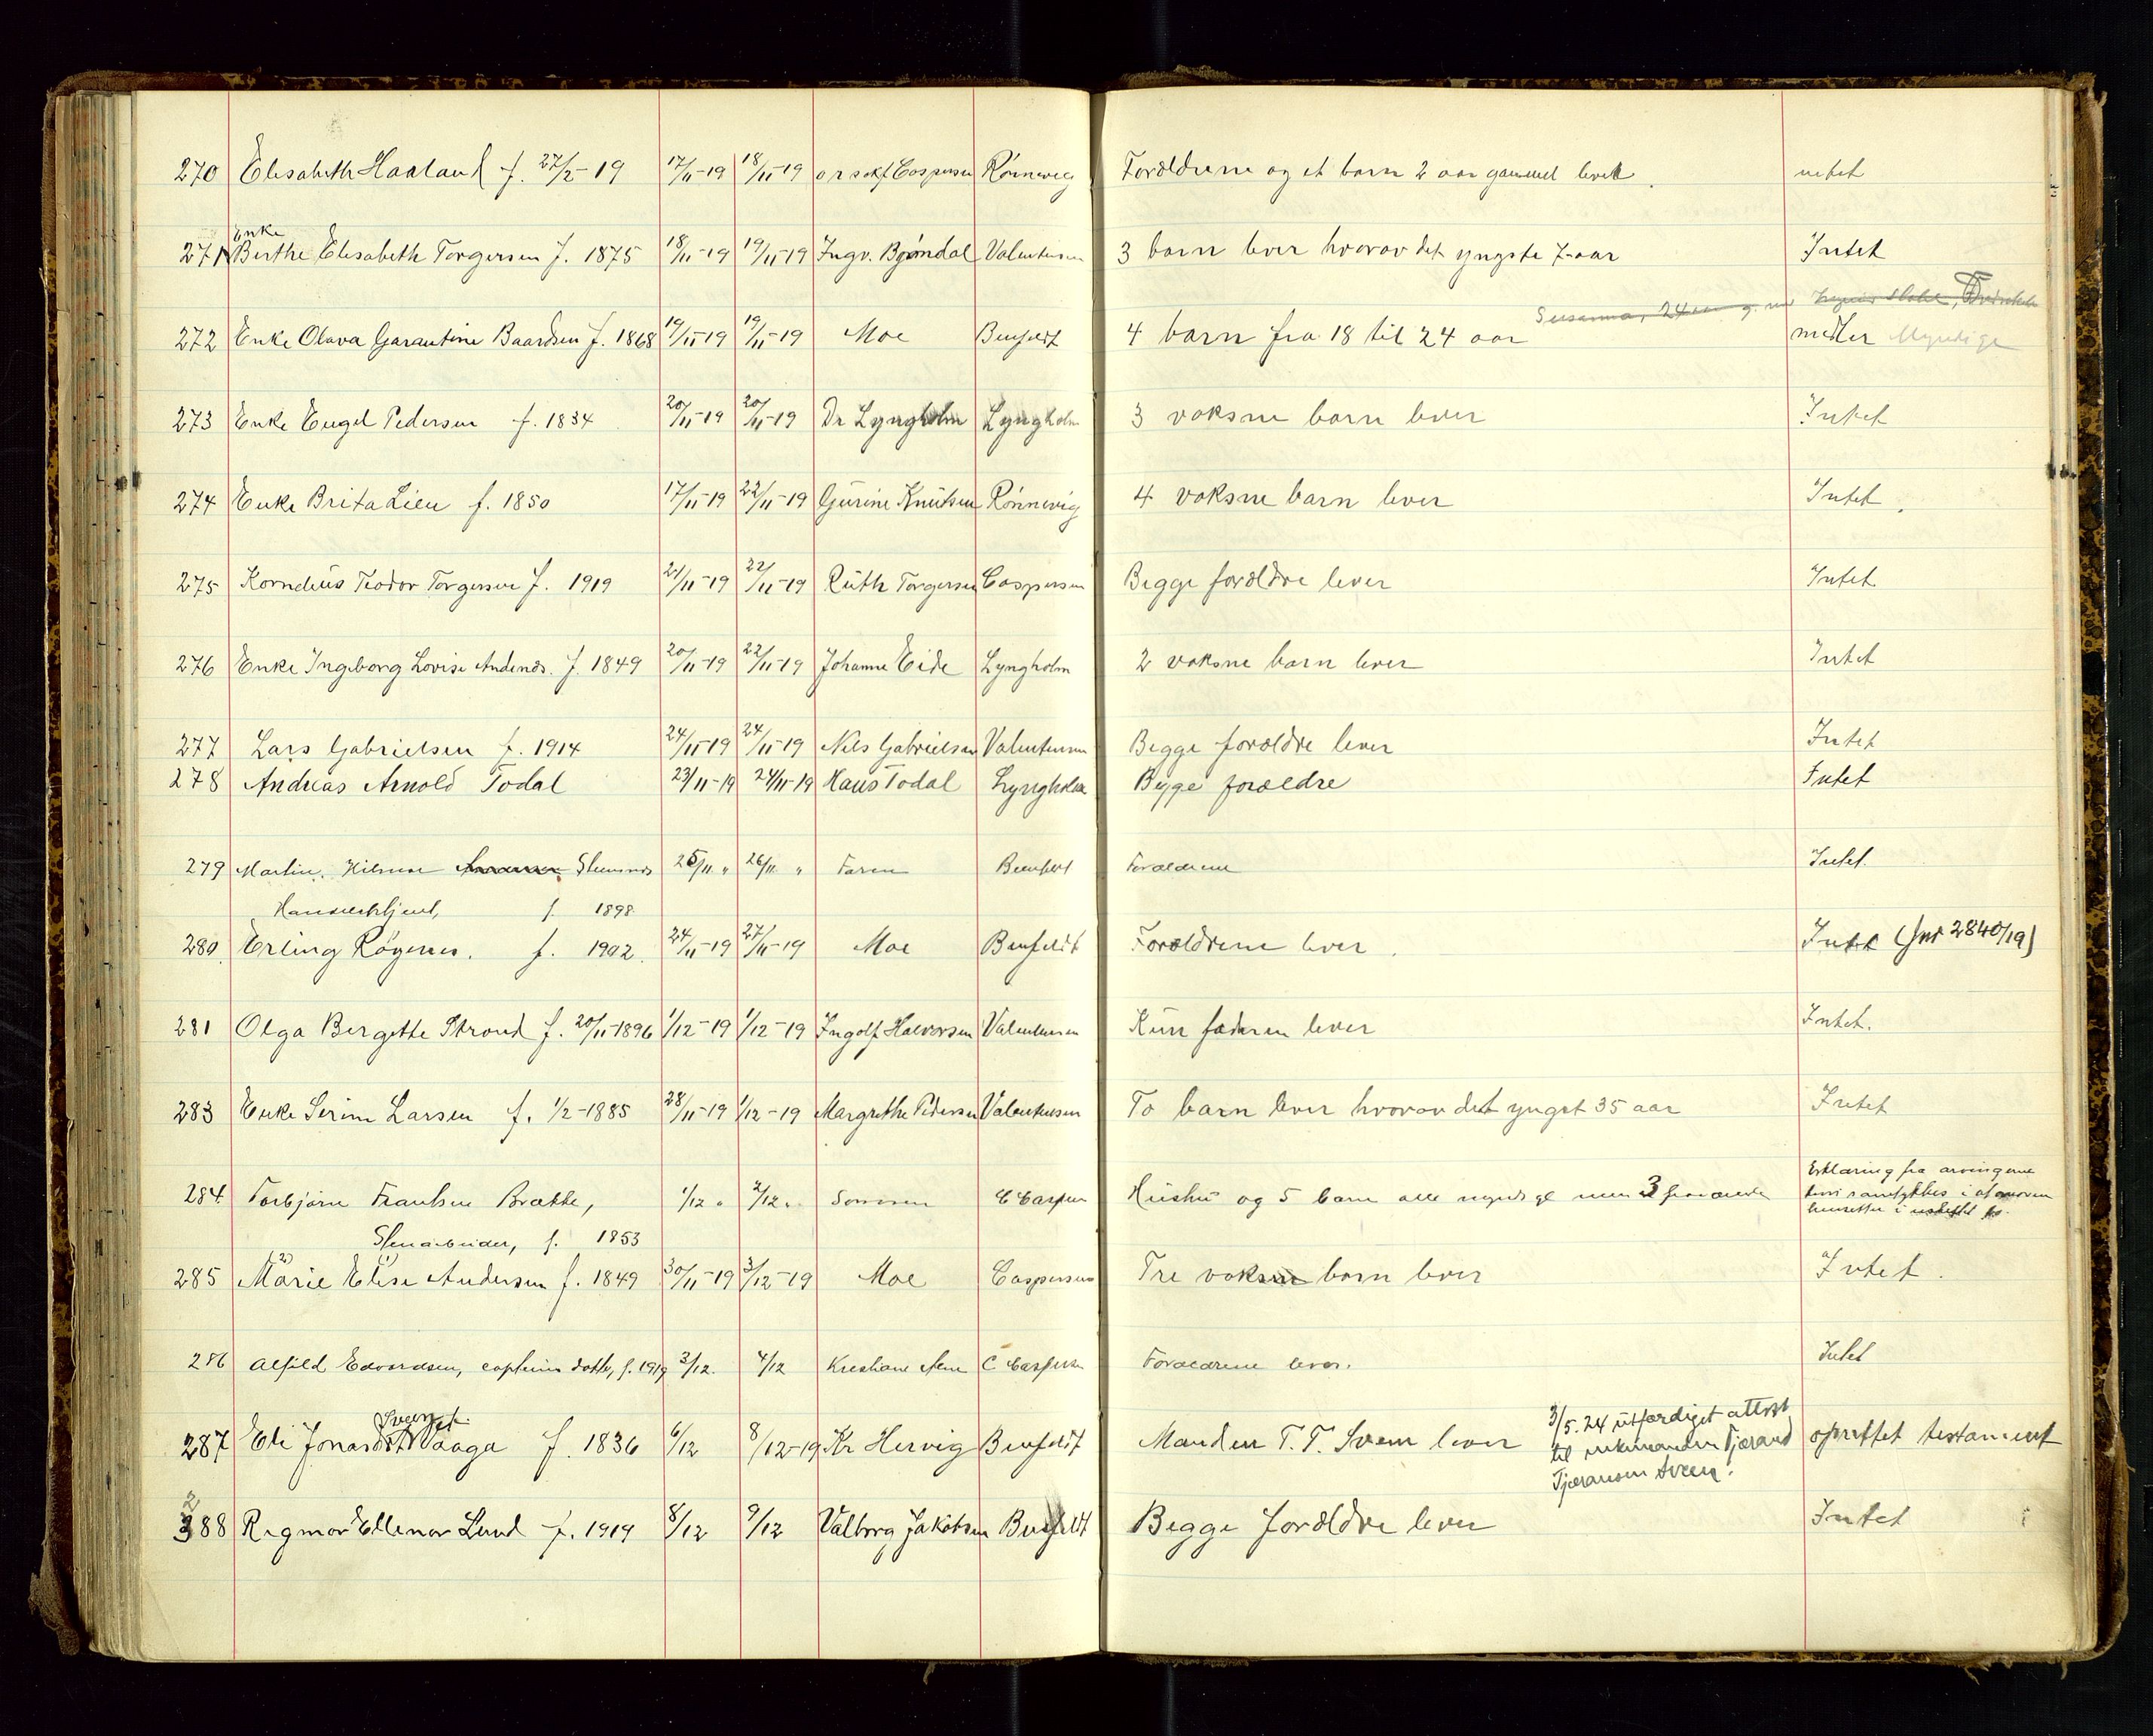 270 Elisabeth Haaland f. 27/2-19 17/11-19 18/11-19 Caspersen Rönnevig Forældrene og et barn 2 aar gammel lever intet
Enke
271 Berthe Elisabeth Torgersen f. 1875 18/11-19 19/11-19 Ingv. Bjørndal Valentinsen 3 barn lever hvorav det yngste 7 aar Intet
Susanna, 24 aar g. m.
272 Enke Olava Garantine Baardsen f. 1868 19/11-19 19/11-19 Moe Benfeldt 4 barn fra 18 til 24 aar midler Myndige
273 Enke Engel Pedersen f. 1834 20/11-19 20/11-19 Dr Lyngholm Lyngholm 3 voksne barn lever Intet
274 Enke Brita Lien f. 1850 17/11-19 22/11-19 Gurine Knutsen Rönnevig 4 voksne barn lever Intet.
275 Kornelius Teodor Torgersen f. 1919 21/11-19 22/11-19 Ruth Torgersen Caspersen Begge forældre lever Intet
276 Enke Ingeborg Lovise Andends. f. 1849 20/11-19 22/11-19 Johanne Eide Lyngholm 2 voksne barn lever Intet
277 Lars Gabrielsen f. 1914 24/11-19 24/11-19 Nils Gabrielsen Valentinsen Begge forældre lever Intet
278 Andreas Arnold Todal 23/11-19 24/11-19 Hans Todal Lyngholm Begge forældre Intet
279 Martin Hilmar 25/11 " 26/11 " Faren Benfeldt Forældrene Intet.
f. 1898
280. Erling Røgenes. f. 1902. 24/11-19 27/11-19 Moe Benfeldt Forældrene lever. Intet (Jnr 2840/19)
281 Olga Bergette Strand f. 20/11-1896 1/12-19 1/12-19 Ingolf Halvorsen Valentinsen Kun faderen lever Intet.
283 Enke Serine Larsen f. 1/2-1885 28/11-19 1/12-19 Margrethe Pedersen Valentinsen To barn lever hvorav det yngst 35 aar Intet
Erklæring fra arvingerne
284 Torbjørn Frantsen Brætte, 1/12 " 2/12 " Sønnen C Caspersen Hustru og 5 barn alle myndige
Stenarbeider, f. 1853
285 Marie Elise Andersen f. 1849 30/11-19 3/12-19 Moe Caspersen Tre voksne barn lever Intet.
286 Alfild Edvardsen, datter, f. 1919 3/12. 4/12 C Caspersen Forældrene lever. Intet
Sveen f.
3/5.24 utfærdiget attest
287 Eli Jonasdt Vaaga f. 1836 6/12 8/12-19 Kr Hervig Benfeldt Manden T. T. Sveen lever til enkemanden Tjærand oprettet testament
Tjæransen Sveen.
288 Rigmor Ellenor Lund f. 1919 8/12 9/12 Valborg Jakobsen Benfeldt Begge forældre lever Intet